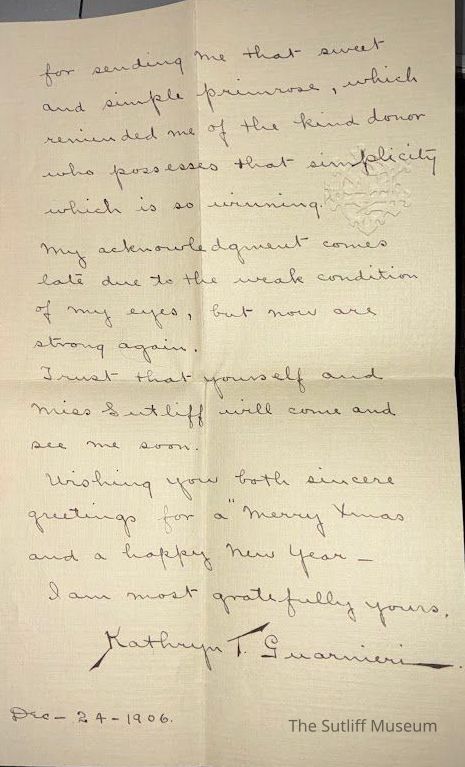 for sending me that sweet
and simple primrose, which
reminded me of the kind donor
who possesses that simplicity
which is so winning.
My acknowledgment comes
late due to the weak condition
of my eyes, but now are
strong again.
Trust that yourself and
Miss Sutliff will come and
see me soon.
Wishing you both sincere
greetings for a "Merry Xmas
and a happy New Year –
I am most gratefully yours.
Kathryn T. Guarnieri.
Dec – 24 – 1906.
The Sutliff Museum